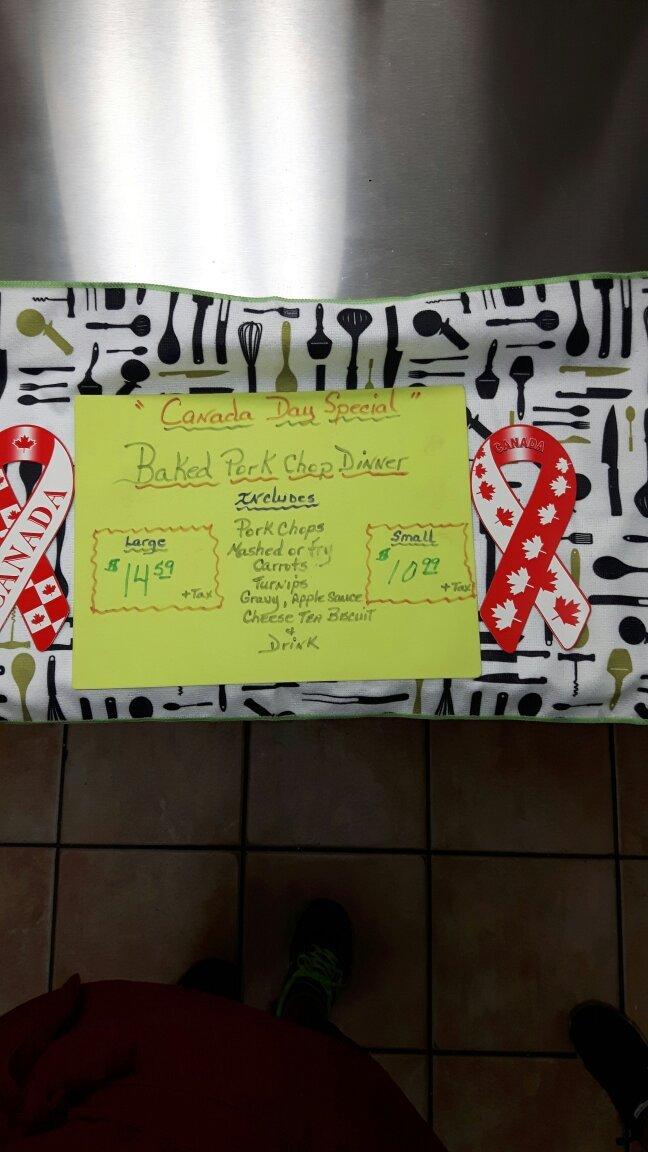 " Canada Day Special "
Baked Pork Chop Dinner
Includes
Pork Chops
Mashed or Fry
Carrots
Turnips
Gravy, Apple Sauce
Cheese Tea Biscuit
&
Drink
Large
$ 14 59
+ Tax
Small
$ 10 99
+ Tax
CANADA
CANADA